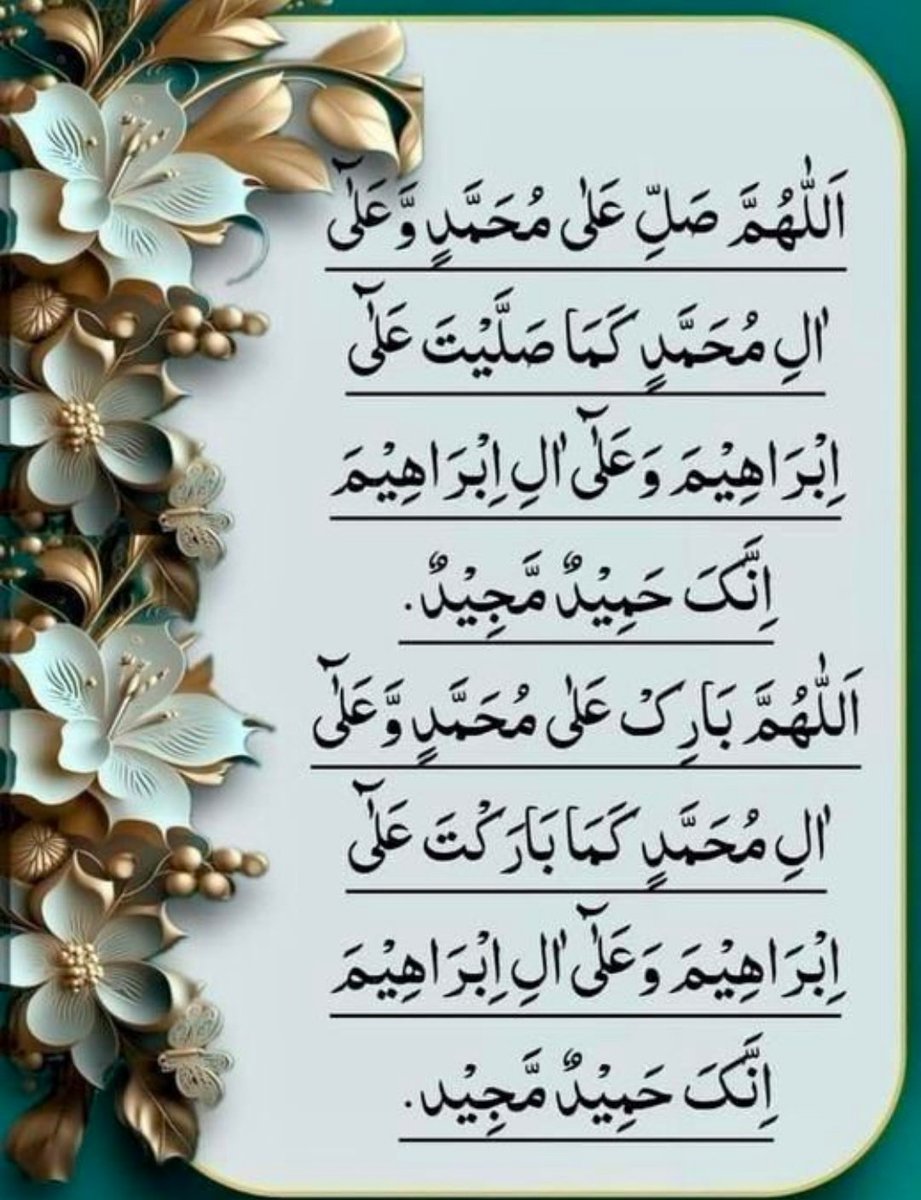 اَللّٰهُمَّ صَلِّ عَلٰى مُحَمَّدٍ وَّعَلٰٓى
اٰلِ مُحَمَّدٍ كَمَا صَلَّيْتَ عَلٰٓى
اِبْرَاهِيْمَ وَعَلٰٓى اٰلِ اِبْرَاهِيْمَ
اِنَّکَ حَمِيْدٌ مَّجِيْدٌ.
اَللّٰهُمَّ بَارِکْ عَلٰى مُحَمَّدٍ وَّعَلٰٓى
اٰلِ مُحَمَّدٍ كَمَا بَارَكْتَ عَلٰٓى
اِبْرَاهِيْمَ وَعَلٰٓى اٰلِ اِبْرَاهِيْمَ
اِنَّکَ حَمِيْدٌ مَّجِيْد.